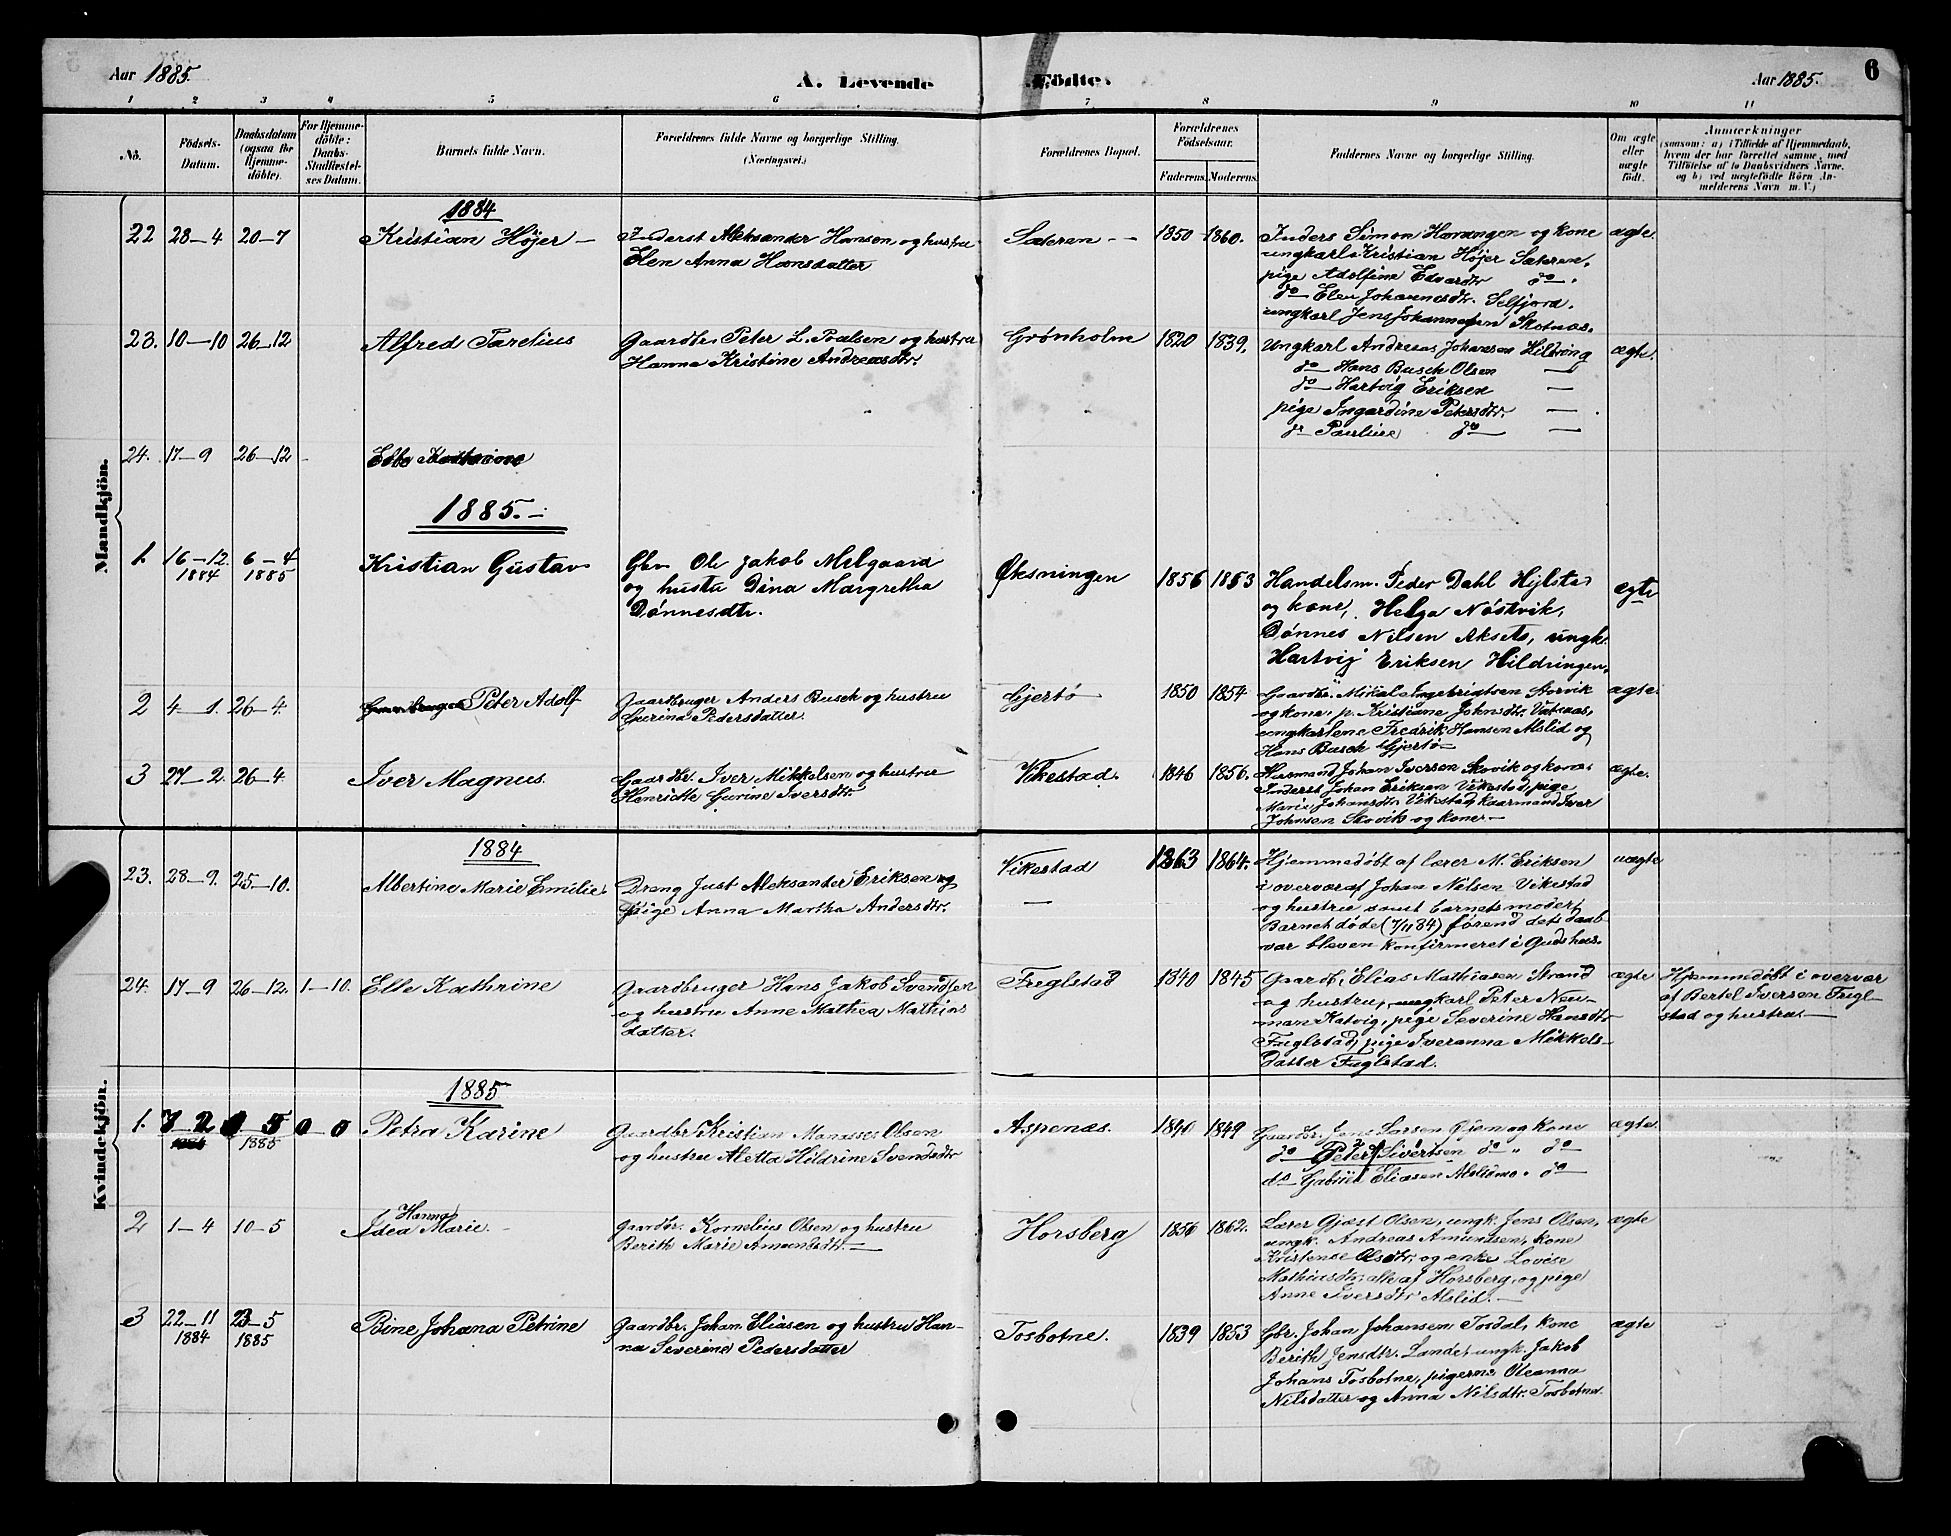 Aar 1885.
A. Levende
Födte.
Aar 1885.
6
1 2 3 4 5 6 7 8 9 10 11
No.
Födsels-
Datum.
Daabsdatum
(ogsaa for
Hjemme-
döbte).
For Hjemme-
döbte:
Daabs-
Stadfæstel-
ses Datum.
Barnets fulde Navn.
Forældrenes fulde Navne og borgerlige Stilling.
(Næringsvei.)
Forældrenes Bopæl.
Forældrenes
Födselsaar.
Faderens. Moderens.
Faddernes Navne og borgerlige Stilling.
Om ægte
eller
uægte
födt.
Anmærkninger
(saasom: a) i Tilfælde af Hjemmedaab,
hvem der har forrettet samme, med
Tilföielse af to Daabsvidners Navne,
og b) ved uægtefödte Börn An-
melderens Navn m. V.)
Mandkjön.
1884
22 28-4 20-7
Kristian Höjer
Inderst Aleksander Hansen og hustru
Elen Anna Hansdatter
Sæteren
1850 1860.
Inders Simon Havangen og kone
ungkarl Kristian Höjer Sæteren,
pige Adolfine Edvardtr do
do Elen Johannesdtr. Selfjord,
ungkarl Jens Johannesen Skotnæs.
ægte.
23. 10-10 26-12
Alfred Parelius
Gaardbr. Peter L. Poalsen og hustru
Hanna Kristine Andreasdtr.
Grønholm
1820 1839.
Ungkarl Andreas Johansen Hildring
do Hans Busch Olsen
do Hartvig Eriksen
pige Ingardine Petersdtr.
do Pauline do
ægte.
24. 17-9 26-12
Elle Kathrine
1885.
1. 16-12 1884 6-4 1885
Kristian Gustav
Gbr. Ole Jakob Melgaard
og hustu Dina Margretha
Dønnesdtr.
Øksningen
1856 1853
Handelsm. Peder Dahl Hjlstad
og kone, Helga Nöstvik,
Dønnes Nilsen Aksets, ungk.
Hartvig Eriksen Hildringen.
ægte
2 4-1. 26-4.
Gaardbruger Peter Adolf
Gaardbruger Anders Busch og hustru
Gurina Pedersdatter.
Gjertö
1850 1854
Gaardbr. Mikal Ingebrigtsen Storvik
og kone, p. Kristiane Johnsdtr. Vatnaas,
ungkarlene Fredrik Hansen Alslid og
Hans Busch Gjertö
ægte.
3 27-2. 26-4.
Iver Magnus.
Gaardbr. Iver Mikkelsen og hustru
Henriette Gurine Iversdtr.
Vikestad.
1846 1856.
Husmand Johan Iversen Skovik og kone.
Inderst Johan Eriksen Vikestad, pige
Marie Johansdtr Vikestad, kaarmand Iver
Johnsen Skovik og kone.
ægte.
Kvindekjön.
1884
23. 28-9. 25-10.
Albertine Marie Emilie.
Dreng Just Aleksander Eriksen og
Pige Anna Martha Andersdtr.
Vikestad
1863 1864.
Hjemmedøbt af lærer M. Eriksen
i overvær af Johan Nilsen Vikestad
og hustru samt barnets moder.
Barnet døde (7/11 84) førend dets daab
var bleven konfirmeret i Gudshus.
uægte
24. 17-9 26-12. 1-10.
Elle Kathrine
Gaardbruger Hans Jakob Svendsen
og hustru Anne Mathea Mathias
datter.
Fuglstad
1840 1845
Gaardb. Elias Mathiasen Strand
og hustru, ungkarl Peter Neu-
man Katvig, pige Severine Hansdtr
Fuglstad, pige Iveranna Mikkels-
datter Fuglstad.
ægte
Hjemmedøbt i overvær
af Bertel Iversen Fugl-
stad og hustru.
1885
1. 1885
Petra Karine
Gaardbr. Kristian Manasses Olsen
og hustru Aletta Hildrine Svendsdtr
Aspenæs.
1840 1849
Gaardbr. Jens Larsen Gjem og kone
do Peter Sivertsen do " do
do Gabriel Eliasen Alsl do
ægte.
2 1-4 10-5
Hanna
Idea Marie.
Gaardbr. Kornelius Olsen og hustru
Berith Marie Amundsdtr.
Horsberg
1856 1862.
Lærer Gjæst Olsen, ungk. Jens Olsen,
ungk. Andreas Amundsen, kone
Kristense Olsdtr. og enke Lovise
Mathiasdtr. alle af Horsberg, og pige
Anne Iversdtr Alslid.
ægte
3 22-11 1884 23-5 1885
Bine Johana Petrine
Gaardbr. Johan Eliasen og hustru Han-
na Severine Pedersdatter
Tosbotne.
1839 1853
Gbr. Johan Johansen Tosdal, kone
Berith Jensdtr. Lande, ungk. Jakob
Johans Tosbotne, pigerne Oleanna
Nilsdatter og Anna Nilsdtr. Tosbotne.
ægte